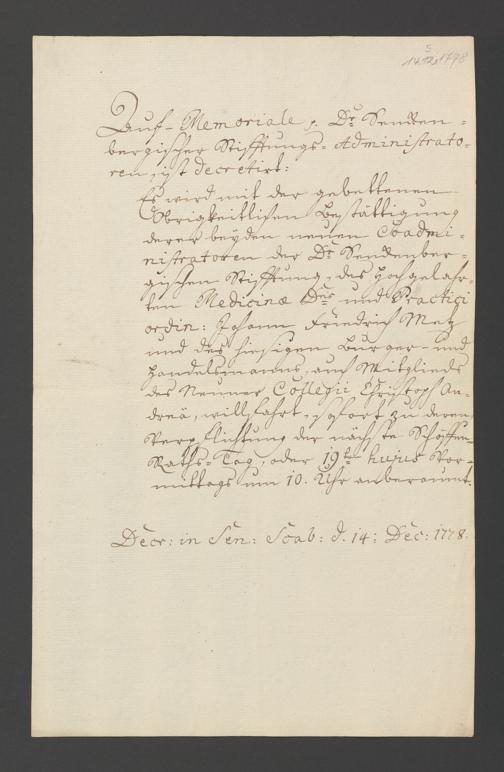 14. 12. 1778
5
Auf Memoriale p. Dr. Senken-
bergischer Stifftungs-Administrato-
ren, ist decretirt:
Es wird mit der gebettenen
Obrigkeitlichen Bestättigung
derer beyden neuen Coadmi-
nistratoren der Dr. Senkenber-
gischen Stifftung, des Hochgelahr-
ten Medicinæ Dris und Practici
ordin: Johann Friedrich Metz
und des hiesigen Burger- und
Handelsmanns, auch Mitglieds
des Neuner Collegii Christoph An-
dreä, willfahrt, sofort zu deren
Verpflichtung der nächste Schöffen
Raths-Tag, oder 19te hujus Vor-
mittags um 10. Uhr anberaumt.
Decr: in Sen: Scab: d. 14: Dec: 1778.